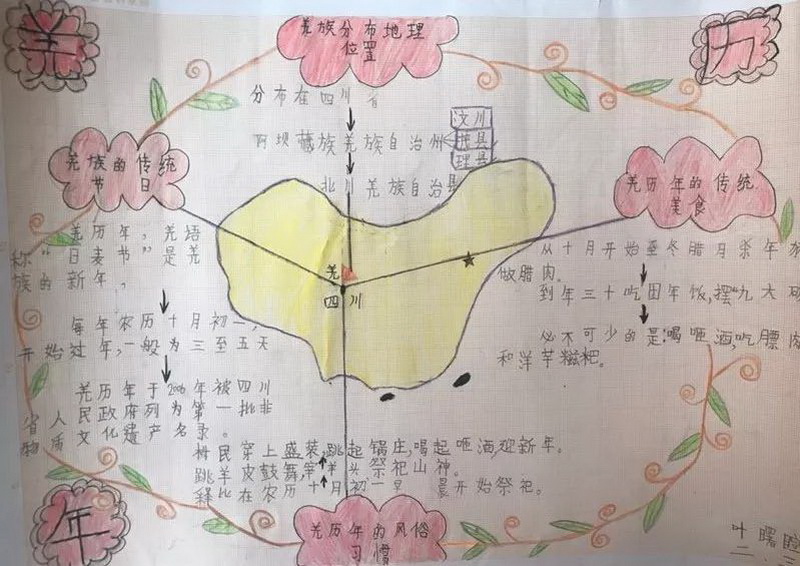 羌
历
羌族分布地理
位置
分布在四川省
阿坝藏族羌族自治州
汶川
茂县
理县
北川羌族自治县
羌族的传统
节日
羌历年的传统
美食
羌历年，羌语
称"日麦节"是羌
族的新年，
每年农历十月初一，
开始过年，一般为三至五天
羌历年于2006年被四川
省人民政府列为第一批非
物质文化遗产名录。
羌
四川
从十月开始至冬腊月杀年
做腊肉。
到年三十吃团年饭，摆"九大
必不可少的是：喝咂酒，吃膘肉
和洋芋糍粑。
村民穿上盛装，跳起锅庄，喝起咂酒，迎新年。
跳羊皮鼓舞，宰羊头祭祀山神。
释比在农历十月初一早晨开始祭祀。
年
羌历年的风俗
习惯
叶曙
二